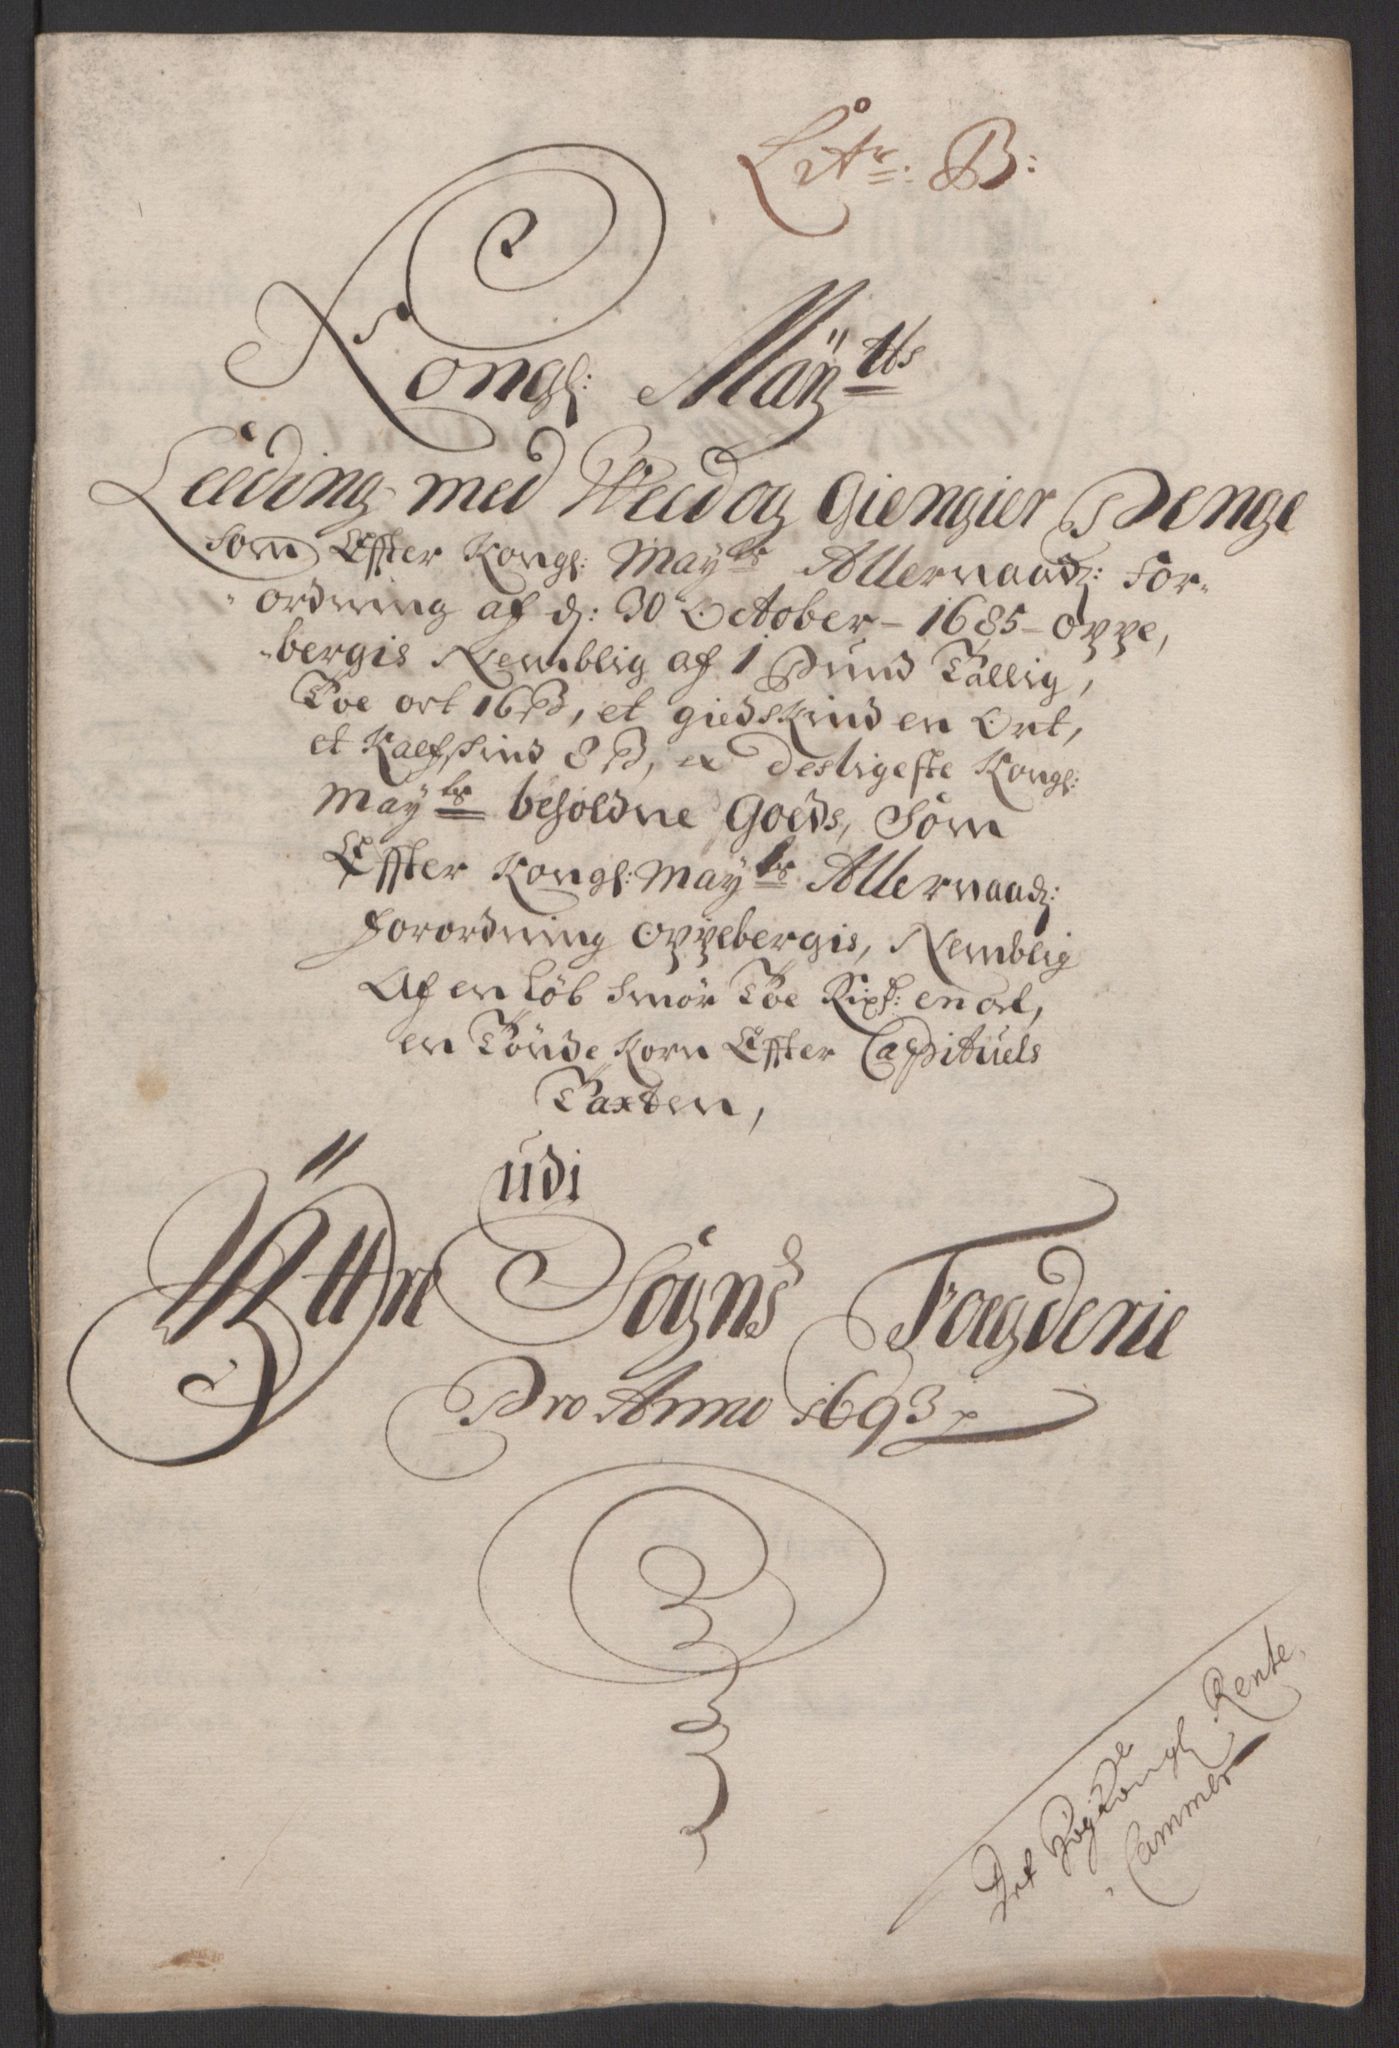 Litr: B:
Kongl: Mäÿtts
Leeding med Weed og Giengier Penge
som Effter Kongl: Maÿts Allernaadl: For-
ordning af d: 30 October - 1685 - oppe,
bergis Nemblig af 1 Pund Tallig,
Toe ort 16 β, et giedskind en Ort,
et Kalfskind 8 β, ex desligeste Kongl:
Maÿts beholdne Goeds, Som
Effter Kongl: Maÿts Allernaadl:
forordning oppebergis, Nemblig
Af en Løb Smör Toe Rixd: en ort,
en Tönde Korn Effter Capituels
Taxten,
udi
Ÿttre Sogns Foegderie
Pro Anno 1693
Det Høÿe Kongl Rente,
Cammer